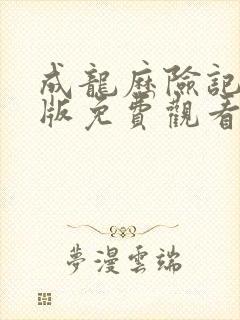 成龍歷險記
版免費觀看
夢漫雲端